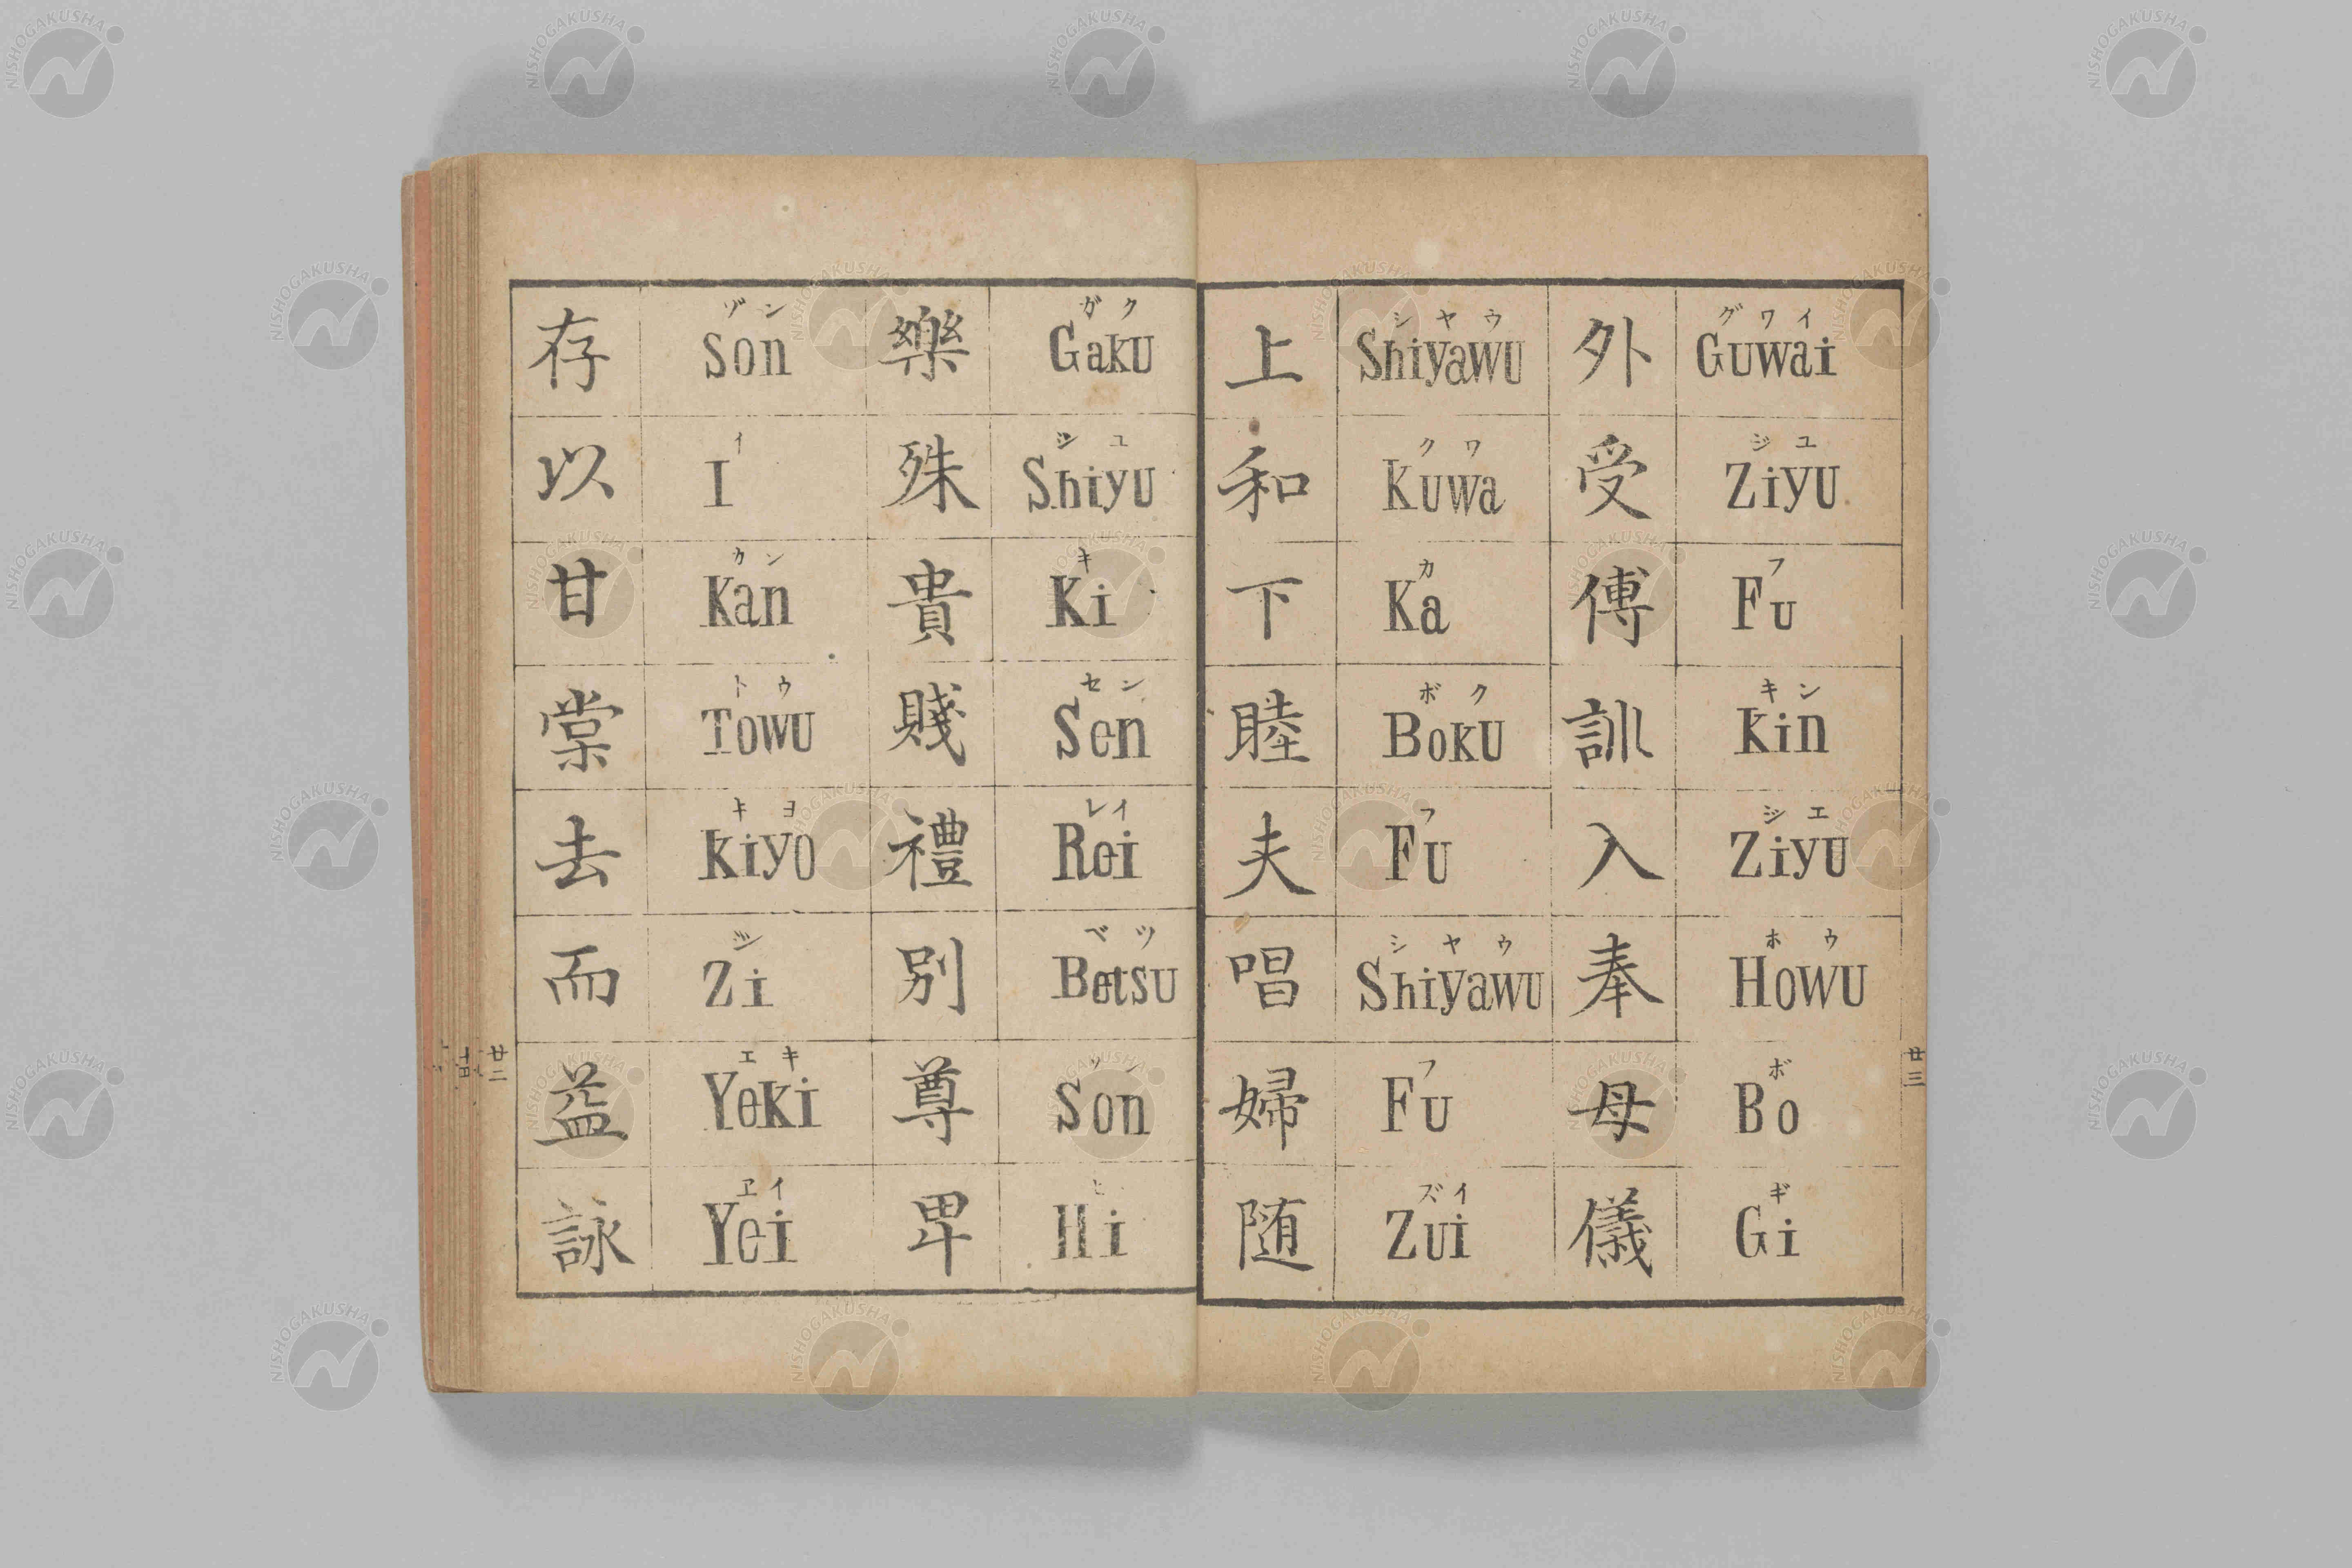 存以甘棠去而益詠
ゾン
Son
イ
I
カン
Kan
トウ
Towu
キヨ
Kiyo
ジ
Zi
エキ
Yeki
ヱイ
Yei
樂殊貴賤禮別尊卑
ガク
Gaku
シユ
Shiyu
キ
Ki
セン
Sen
レイ
Rei
ベツ
Betsu
ソン
Son
ヒ
Hi
上和下睦夫唱婦随
シヤウ
Shiyawu
クワ
Kuwa
カ
Ka
ボク
Boku
フ
Fu
シヤウ
Shiyawu
フ
Fu
ズイ
Zui
外受傅訓入奉母儀
グワイ
Guwai
ジユ
Ziyu
フ
Fu
キン
Kin
ジエ
Ziyu
ホウ
Howu
ボ
Bo
ギ
Gi
廿二
廿三
NISHOGAKUSHA